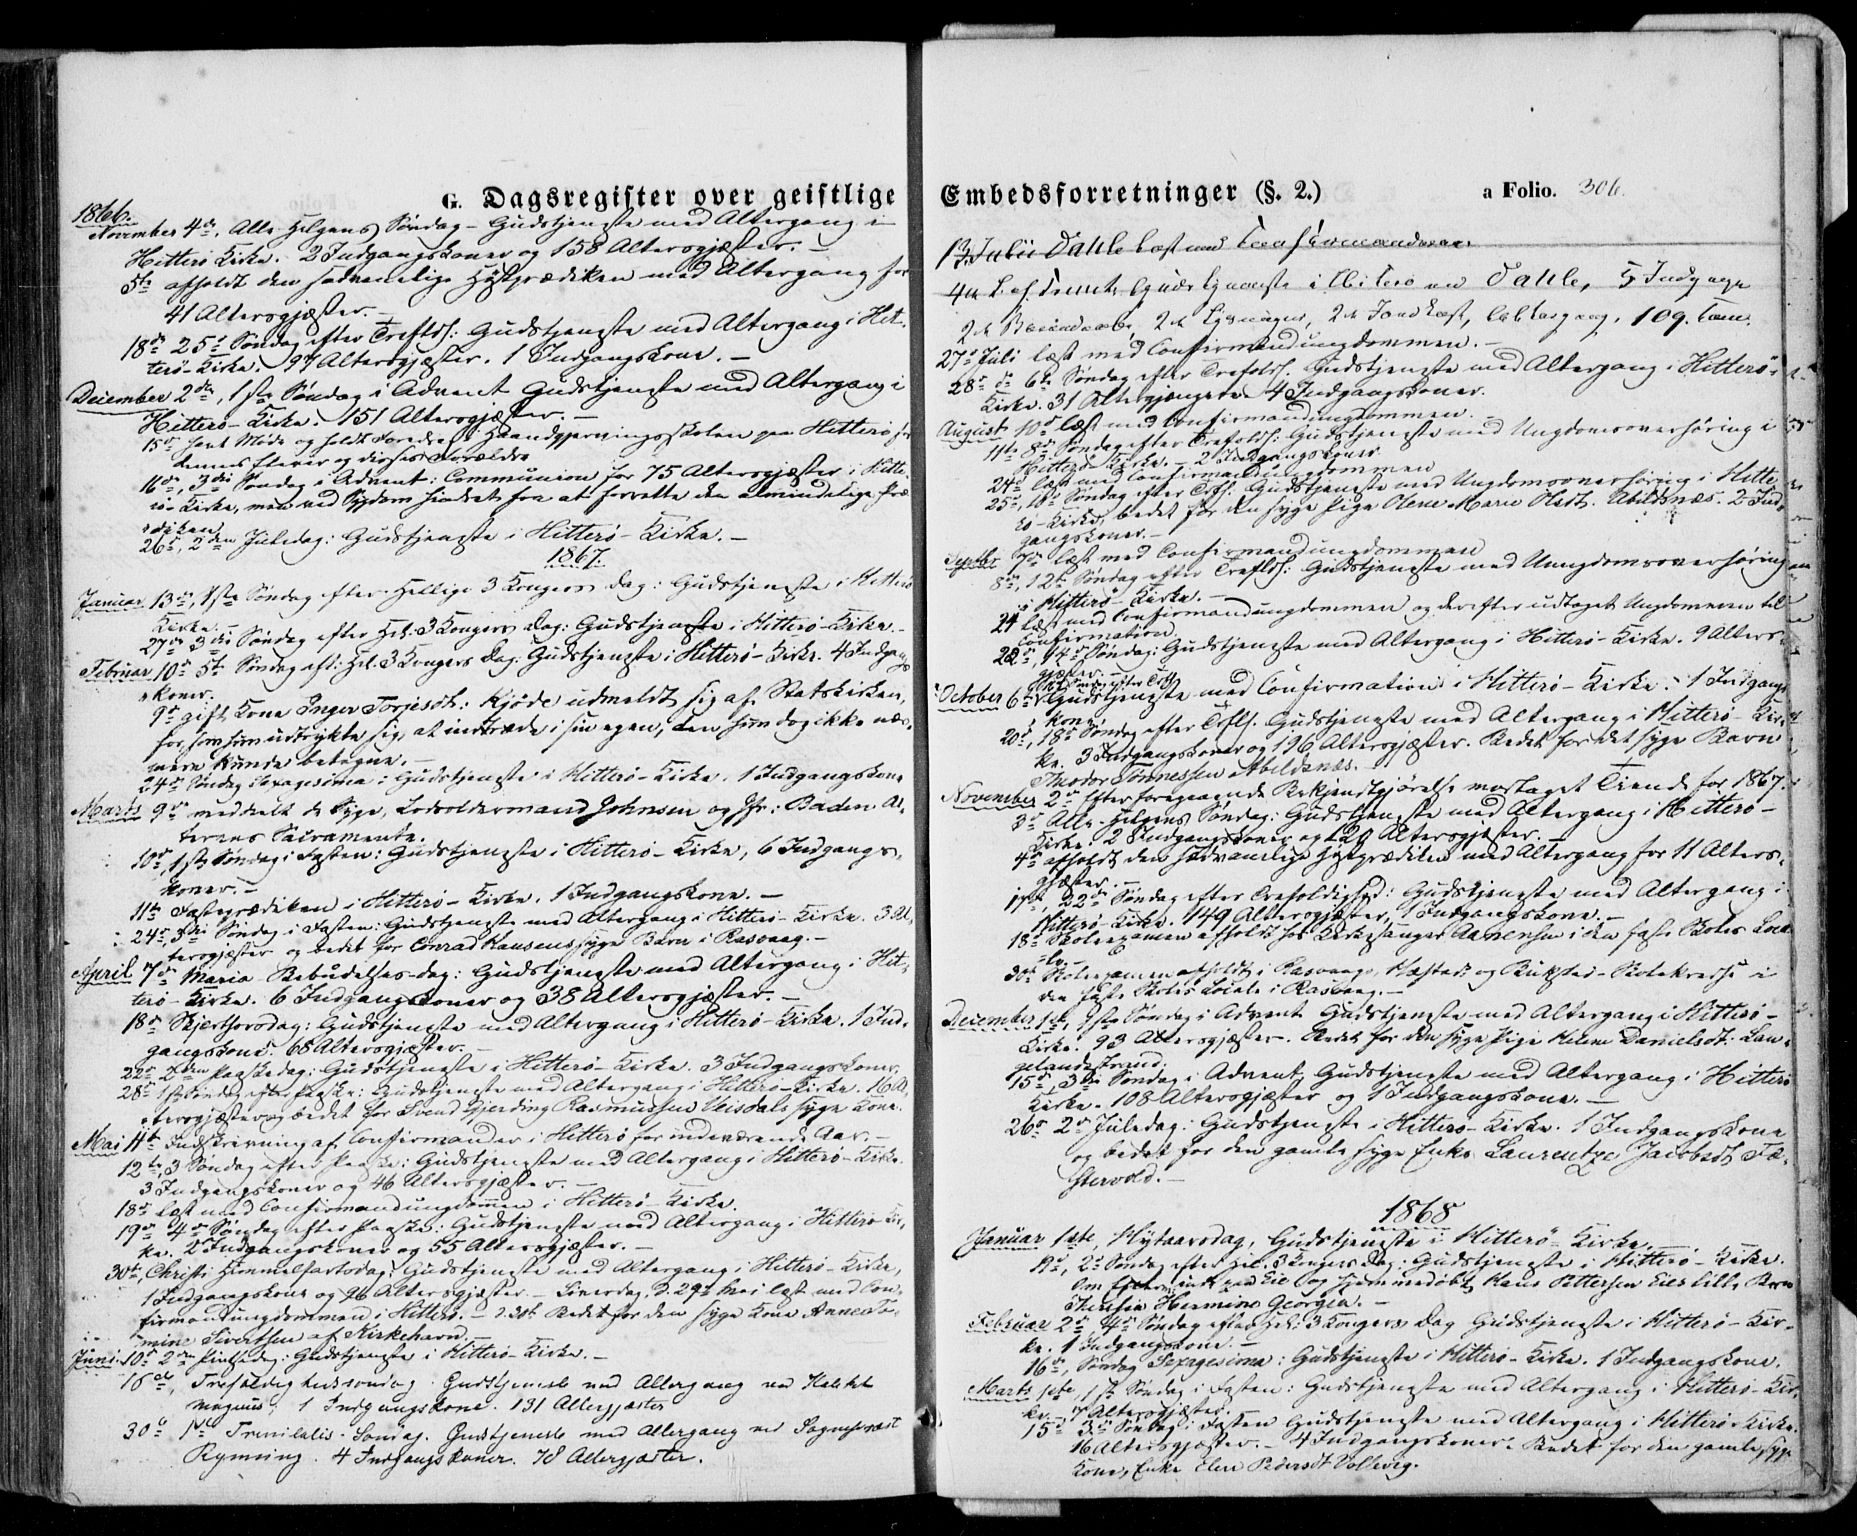 G. Dagsregister over geistlige
1866.
November 4de, Alle Helgens Søndag - Gudstjeneste med Altergang i
Hitterø Kirke. 2 Indgangskoner og 158 Altersgjæster. -
5te afholdt den sædvanelige Høstprædiken med Altergang for
41 Altersgjæster. -
18de 25de Søndag efter Trefoldh: Gudstjeneste med Altergang i Hit-
terø-Kirke. 97 Altersgjæster. 1 Indgangskone. -
December 2den, 1ste Søndag i Advent Gudstjeneste med Altergang i
Hitterø-Kirke. 151 Altersgjæster. -
15de holdt Møde og holdt Foredrag i Haandgjerningsskolen paa Hitterø for
dennes Elever og disses Forældre
16de, 3die Søndag i Advent: Communion for 75 Altersgjæster i Hitte-
rø-Kirke, men ved Sygdom hindret fra at forrette den almindelige Præ-
diken
26de, 2den Juledag: Gudstjeneste i Hitterø-Kirke. -
1867.
Januar 13de, 1ste Søndag efter Hellige 3 Kongers Dag: Gudstjeneste i Hitterø
Kirke. -
27de 3die Søndag efter Hel: 3 Kongers Dag: Gudstjeneste i Hitterø-Kirke. -
Februar 10de 5te Søndag eft: Hel. 3 Kongers Dag. Gudstjeneste i Hitterø-Kirke. 4 Indgangs-
koner.
9de gift Kone Inger Torjesdt: Kjøde udmeldt sig af Statskirken,
for, som hun udtrykte sig, at indtræde i sin egen, den hun dog ikke nær-
mere kunde betegne. -
24de Søndag Sexagesima: Gudstjeneste i Hitterø-Kirke. 1 Indgangskone
Marts 9de meddelt de Syge, Lodsoldermand Johnsen og Jfr: Baden Al-
terens Sacramente.
10de, 1ste Søndag i Fasten: Gudstjeneste i Hitterø-Kirke, 6 Indgangs-
koner. -
11te Fasteprædiken i Hitterø-Kirke. 1 Indgangskone. -
24de, 3die Søndag i Fasten: Gudstjeneste med Altergang i Hitterø-Kirke. 3 Al-
tersgjæster og bedet for Conrad Hansens syge Barn i Rasvaag. -
April 7de Maria Bebudelses-dag: Gudstjeneste med Altergang i Hit-
terø-Kirke. 6 Indgangskoner og 38 Altersgjæster. -
18de Skjærthorsdag: Gudstjeneste med Altergang i Hitterø-Kirke. 1 Ind-
gangskone. 68 Altersgjæster. -
22de 2den Paaskedag: Gudstjeneste i Hitterø-Kirke. 3 Indgangskoner.
28de 1ste Søndag efter Paaske: Gudstjeneste med Altergang i Hitterø-Kirke. 16 Al-
tersgjæster og bedet for Svend Gjerding Rasmussen Veisdals syge Kone.
Mai 11te Indskrivning af Confirmander i Hitterø for indeværende Aar. -
12te 3 Søndag efter Paaske: Gudstjeneste med Altergang i Hitterø-Kirke.
3 Indgangskoner og 46 Altersgjæster. -
18de læst med Confirmandungdommen i Hitterø-Kirke.
19de 4de Søndag efter Paaske: Gudstjeneste med Altergang i Hitterø Kir-
ke. 2 Indgangskoner og 55 Altersgjæster. -
30te, Christi Himmelfartsdag: Gudstjeneste med Altergang i Hitterø-Kirke,
1 Indgangskone og 26 Altersgjæster. - d. 29de Mai læst med Con-
firmandungdommen i Hitterø. - d. 30te Bedet for den syge Kone Anne To-
mine Sivertsen af Kirkehavn. -
Juni 10de 2den Pintsedag: Gudstjeneste i Hitterø-Kirke. -
16de, Trefoldighedssøndag Gudstjeneste med Altergang ved
1 Indgangskone. 131 Altergjæster
30te 1ste Trinitatis-Søndag. Gudstjeneste med Altergang ved Sogneprest
Rynning. 4 Indgangskoner. 78 Altergjæster.
Embedsforretninger (§. 2.) a Folio. 306.
13. Julii Dahle læst med Confirmanderne
4de S. ef. Trinit. Gudstjeneste i Hitterø ved Dahle, 5 Indgange
2de Barnedaab, 2de Lysninger, 2de Jordkast, Altergang, 109. Com.
27de Juli læst med Confirmandungdommen. -
28de do 6te Søndag efter Trefoldh. Gudstjeneste med Altergang i Hitterø-
Kirke. 31 Altergjængere 4 Indgangskoner.
August 10de læst med Confirmandungdommen. -
11te 8de Søndag efter Trefoldh: Gudstjeneste med Ungdomsoverhøring i
Hitterø Kirke. - 2 Indgangskoner
24de læst med Confirmandungdommen
25de, 10de Søndag efter Trfh: Gudstjeneste med Ungdomsoverhøring i Hitte-
rø-Kirke, bedet for den syge Pige Olene Marie Olsdt. Abildsnæs. 2 Ind-
gangskoner. -
Septbr 7de læst med Confirmandungdommen
8de, 12te Søndag efter Trefldh: Gudstjeneste med Unngdomsoverhøring
i Hitterø-Kirke. -
21 læst med Confirmandungdommen og derefter udtaget Ungdommen til
Confirmation.
22de, 14de Søndag: Gudstjeneste med Altergang i Hitterø-Kirke. 9 Alters-
gjæster. -
October 6te Gudstjeneste med Confirmation i Hitterø-Kirke. 1 Indgangs-
kone
20de, 18de Søndag efter Trfld. Gudstjeneste med Altergang i Hitterø-Kir-
ke. 3 Indgangskoner og 196 Altersgjæster. Bedet for det syge Barn
Thodor Tønnessen Abildsnæs. -
November 2de Efter foregaaende Bekjendtgjørelse modtaget Tiende for 1867.
3de Alle Helgens Søndag: Gudstjeneste med Altergang i Hitterø-
Kirke. 2 Indgangskoner og 120 Altersgjæster. -
4de afholdt den sædvanelige Høstprædiken med Altergang for 11 Alters-
gjæster. -
17de, 22de Søndag efter Trefoldighed: Gudstjeneste med Altergang i
Hitterø-Kirke. 149 Altersgjæster, 1 Indgangskone. -
18de Skoleexamen afholdt hos Kirkesanger Aanensen i den faste Skoles Loca-
le. -
30te Skoleexamen afholdt i Rasvaags, og Skolekredse i
den faste Skoles Locale i Rasvaag. -
December 1ste, 1ste Søndag i Advent Gudstjeneste med Altergang i Hitterø-
Kirke. 93 Altersgjæster. Bedet for den syge Pige Helene Danielsdt: Lan-
gelandsstrand.
15de, 3die Søndag i Advent, Gudstjeneste med Altergang i Hitterø
Kirke. 108 Altersgjæster og 1 Indgangskone. -
26de 2den Juledag: Gudstjeneste i Hitterø-Kirke. 1 Indgangskone
og bedet for den gamle syge Enke Laurentze Jacobsdt, Fæ-
stervold. -
1868
Januar 1ste, Nytaarsdag, Gudstjeneste i Hitterø-Kirke. -
19de, 2den Søndag efter Hel. 3 Kongers Dag: Gudstjeneste i Hitterø-Kirke.
Om Eftermiddag paa Eie og hjemmedøbt Hans Pettersen Eies lille Barn
Theresia Hermine Georgia. -
Februar 2den 4de Søndag efter Hel: 3 Kongers Dag Gudstjeneste i Hitterø-Kir-
ke. 1 Indgangskone. -
16de, Søndag Sexagesima: Gudstjeneste i Hitterø-Kirke. 1 Indgangskone.
Marts 1ste, 1ste Søndag i Fasten: Gudstjeneste med Altergang i Hitterø-Kir-
ke. - 7 Altersgjæster.
15de 3die Søndag i Fasten Gudstjeneste med Altergang i Hitterø Kirke.
16 Altersgjæster. - 4 Indgangskoner. Bedet for den gamle, syge
Kone, Enke Elen Pedersdt Vollevig.